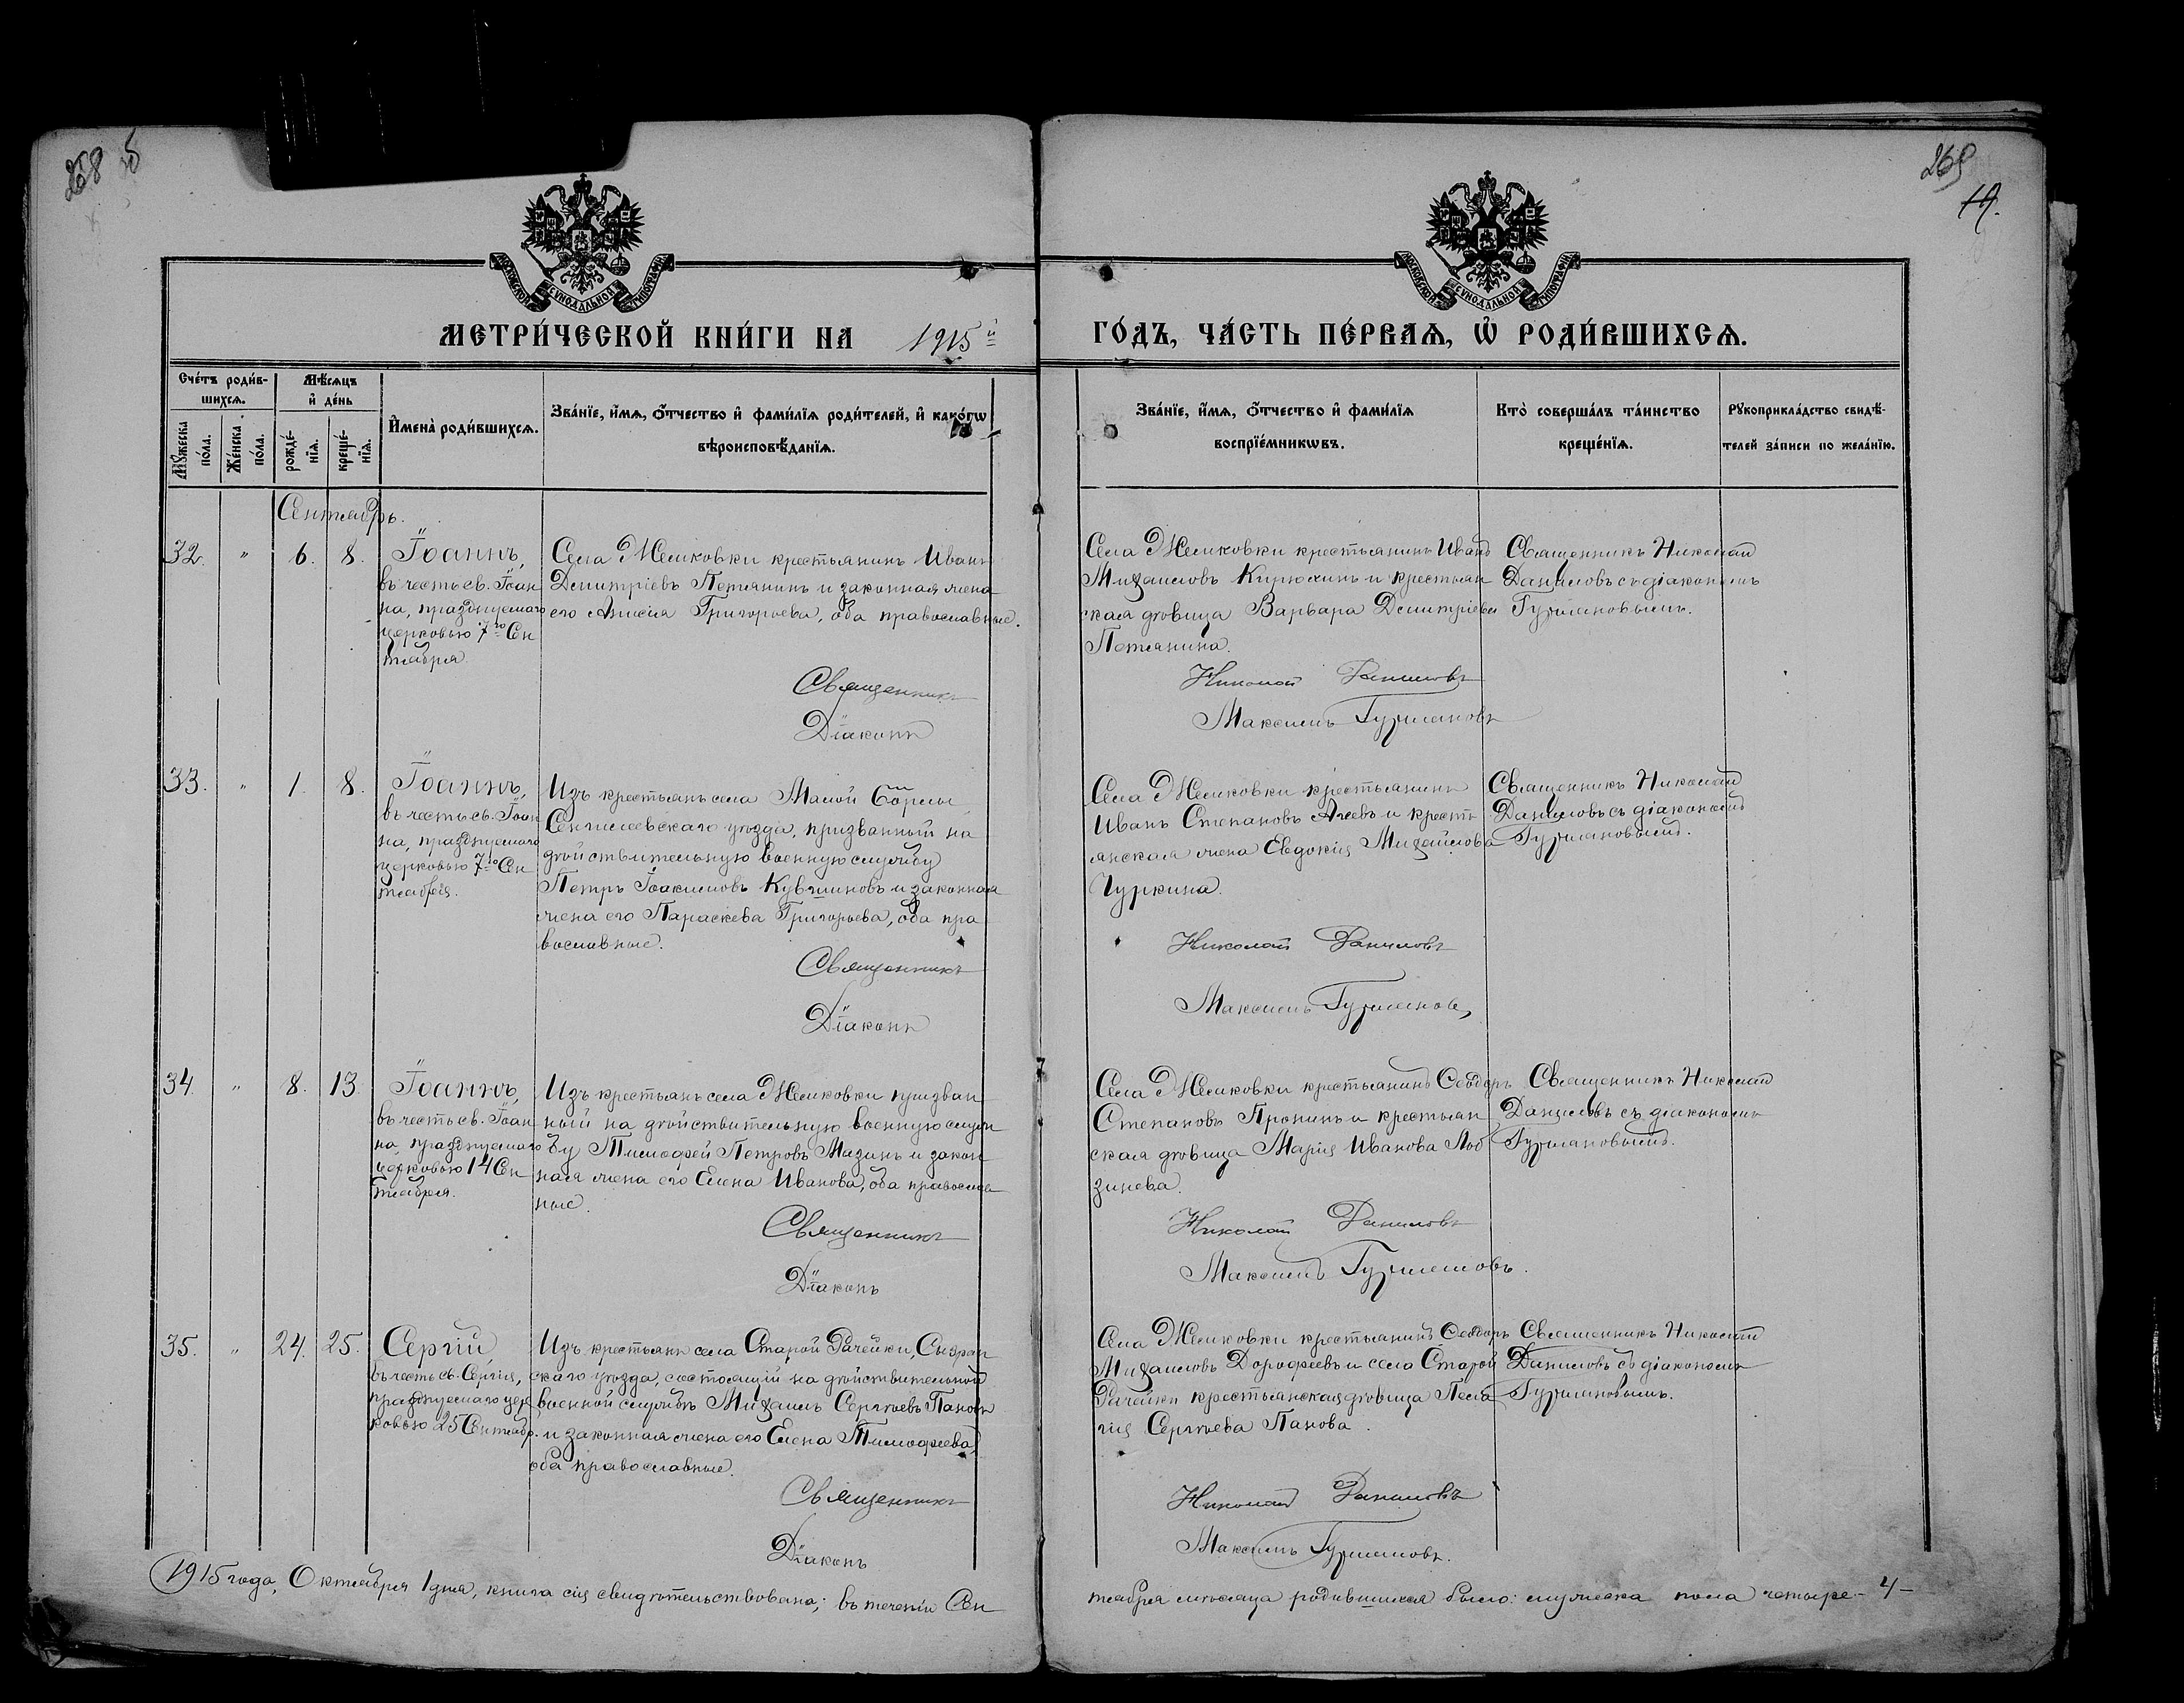 268
269
19.
МОСКОВСКОЙ СУНОДАЛЬНОЙ ТИПОГРАФІИ
МОСКОВСКОЙ СУНОДАЛЬНОЙ ТИПОГРАФІИ
МЕТРИ́ЧЕСКОЙ КНИ́ГИ НА 1915й ГО́ДЪ, ЧА́СТЬ ПЕ́РВАѦ, Ѡ҆ РОДИ́ВШИХСѦ.
Сче́тъ роди́в-
шихсѧ.
Мѣ́сѧцъ
и҆ де́нь
Мꙋ́жеска по́ла.
Же́нска по́ла.
рожде́-
нїѧ.
креще́-
нїѧ.
И҆мена̀ роди́вшихсѧ.
Зва́нїе, и҆́мѧ, ѻ҆́тчество и҆ фами́лїѧ роди́телей, и҆ како́гѡ
вѣроисповѣ́данїѧ.
Зва́нїе, и҆́мѧ, ѻ҆́тчество и҆ фами́лїѧ
воспрїе́мникѡвъ.
Кто̀ соверша́лъ та́инство
креще́нїѧ.
Рꙋкоприкла́дство свидѣ́-
телей за́писи по жела́нїю.
Сентябрь.
32. " 6. 8.
Іоаннъ,
въ честь св. Іоан
на, празднуемаго
церковью 7го Сен
тября.
Села Жемковки крестьянинъ Иванъ
Димитріевъ Петянинъ и законная жена
его Анисія Григорьева, оба православные.
Священникъ
Діаконъ
Села Жемковки крестьянинъ Иванъ
Михаиловъ Кирюхинъ и крестьян
ская дѣвица Варвара Димитріева
Петянина.
Николай Даниловъ
Максимъ Гурмановъ
Священникъ Николай
Даниловъ съ діакономъ
Гурмановымъ.
33. " 1. 8.
Іоаннъ,
въ честь св. Іоан
на, празднуемаго
церковью 7го Сен
тября.
Изъ крестьянъ села Малой Борлы
Сенгилеевскаго уѣзда, призванный на
дѣйствительную военную службу
Петръ Іоакимовъ Кувшиновъ и законная
жена его Параскева Григорьева, оба пра
вославные.
Священникъ
Діаконъ
Села Жемковки крестьянинъ
Иванъ Степановъ Агеевъ и кресть
янская жена Евдокія Михайлова
Чуркина.
Николай Даниловъ
Максимъ Гурмановъ
Священникъ Николай
Даниловъ съ діакономъ
Гурмановымъ.
34. " 8. 13.
Іоаннъ,
въ честь св. Іоан
на, празднуемаго
церковью 14 Сен
тября.
Изъ крестьянъ села Жемковки призван
ный на дѣйствительную военную служ
бу Тимофей Петровъ Мазинъ и закон
ная жена его Елена Иванова, оба православ
ные.
Священникъ
Діаконъ
Села Жемковки крестьянинъ Ѳеодоръ
Степановъ Пронинъ и крестьян
ская дѣвица Марія Иванова
зинева.
Николай Даниловъ
Максимъ Гурмановъ.
Священникъ Николай
Даниловъ съ діакономъ
Гурмановымъ.
35. " 24. 25.
Сергій,
въ честь св. Сергія,
празднуемаго цер
ковью 25 Сентябр.
Изъ крестьянъ села Старой Рачейки, Сызран
скаго уѣзда, состоящій на дѣйствительной
военной службѣ Михаилъ Сергѣевъ Пановъ
и законная жена его Елена Тимофеева,
оба православные.
Священникъ
Діаконъ
Села Жемковки крестьянинъ Ѳеодоръ
Михаиловъ Дорофеевъ и села Старой
Рачейки крестьянская дѣвица Пела
гія Сергѣева Панова.
Николай Даниловъ
Максимъ Гурмановъ.
Священникъ Николай
Даниловъ съ діакономъ
Гурмановымъ.
1915 года, Октября 1 дня, книга сія свидѣтельствована; въ теченіи Сен
тября мѣсяца родившихся было: мужеска пола четыре - 4 -